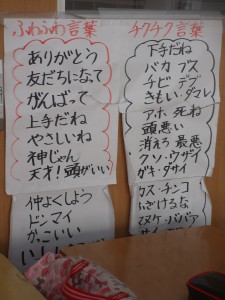 ふわふわ言葉
ありがとう
友だちになって
がんばって
上手だね
やさしいね
神じゃん
天才!頭がいい
仲よくしよう
ドンマイ
かっこいい
チクチク言葉
下手だね
バカ ブス
チビ デブ
きもい・ダサイ
アホ 死ね
頭悪い
消えろ 最悪
クソ・ウザイ
ガキ・ダサイ
カス・チンコ
ふざけるな
マヌケ・ババア